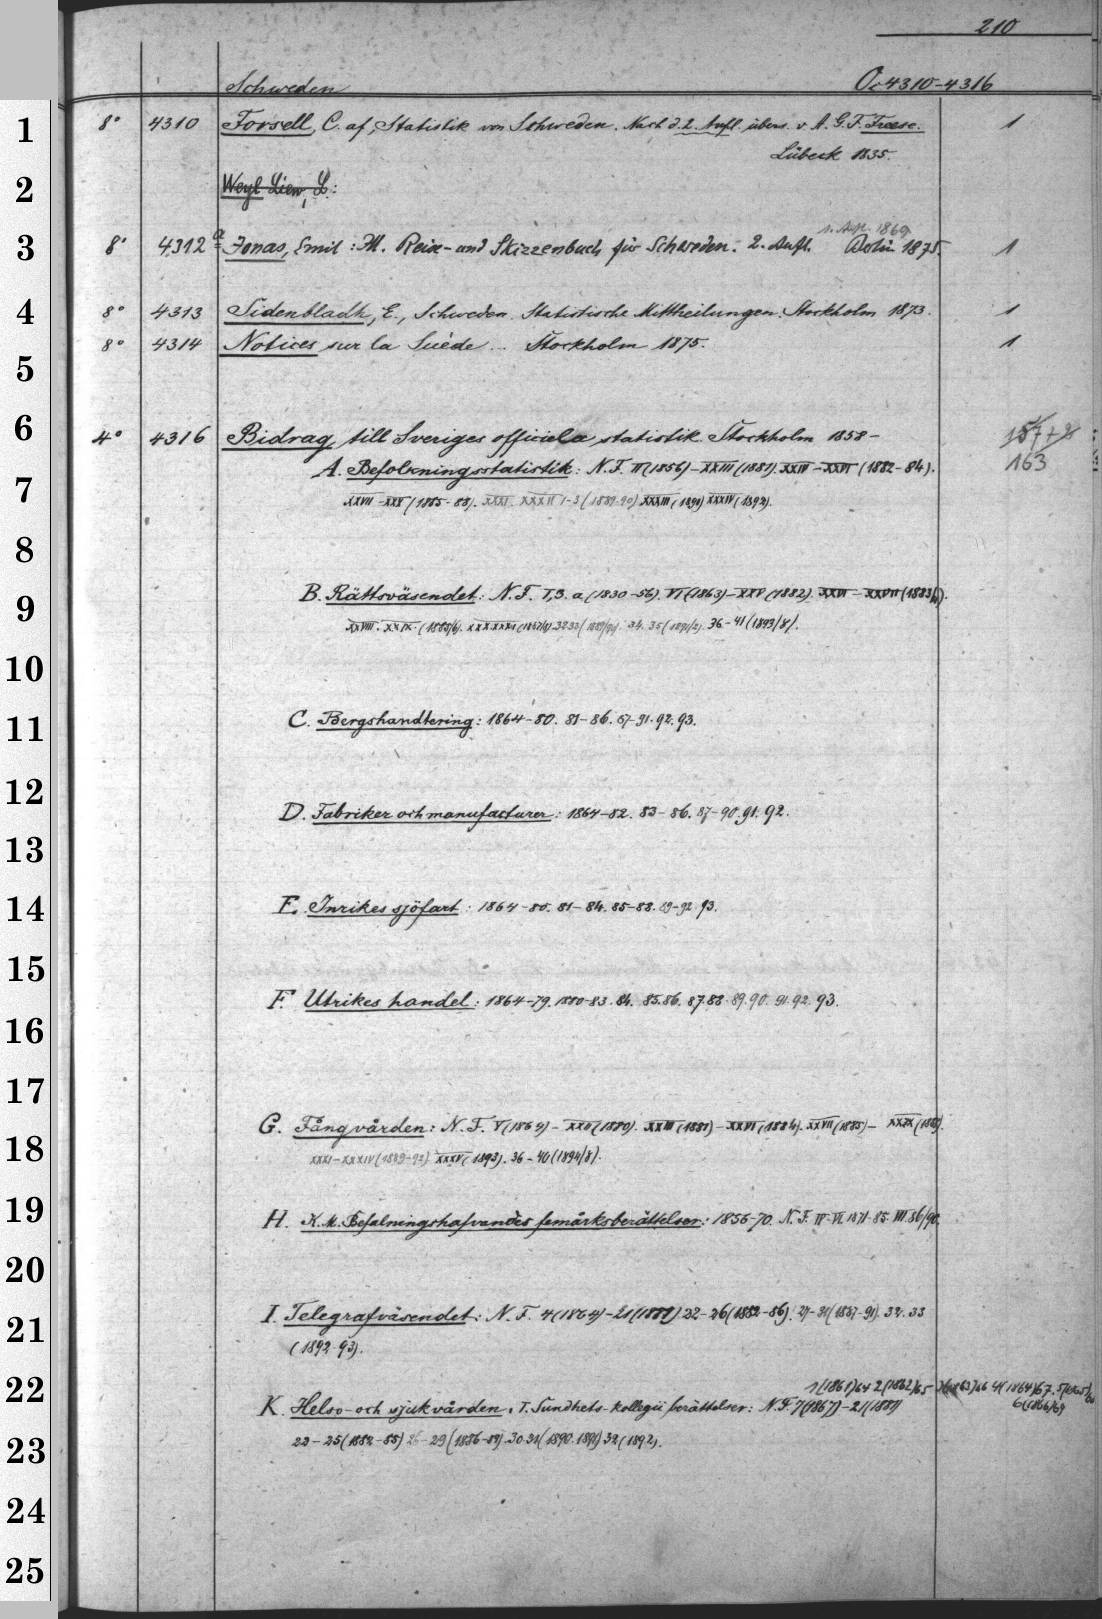 210
Schweden Oc 4310-4316
1 8° 4310 Forsell, C. af, Statistik von Schweden. Nach d. 2. Aufl. übers. v. A. G. F. Freese. 1
Lübeck 1835.
2 Weyl Liew, L:
1. Aufl. 1869
3 8° 4312 a Jonas, Emil: Ill. Reise- und Skizzenbuch für Schweden. 2. Aufl. Berlin 1875. 1
4 8° 4313 Sidenbladh, E., Schweden. Statistische Mittheilungen. Stockholm 1873. 1
5 8° 4314 Notices sur la Suède... Stockholm 1875. 1
6 4° 4316 Bidrag till Sveriges officiela statistik. Stockholm 1858- 157+8
A. Befolkningsstatistik: N. F. II (1856)-XXIII (1881). XXIV-XXVI (1882-84). 163
7 XXVII-XXX (1885-88). XXXI. XXXII 1-3 (1889-90) XXXIII (1891) XXXIV (1892).
8
9 B. Rättsväsendet: N. F. I,3. a (1830-56). VI (1863)-XXV (1882). XXVI-XXVII (1883/4).
XXVIII. XXIX. (1885/6). XXX XXXI (1887/8). 32 33 (1889/90). 34. 35 (1891/2). 36-41 (1893/8).
10
11 C. Bergshandtering: 1864-80. 81-86. 87-91. 92. 93.
12 D. Fabriker och manufacturer: 1864-82. 83-86. 87-90. 91. 92.
13
14 E. Inrikes sjöfart: 1864-80. 81-84. 85-88. 89-92. 93.
15
F. Utrikes handel: 1864-79. 1880-83. 84. 85. 86. 87. 88. 89. 90. 91. 92. 93.
16
17
G. Fångvården: N. F. V (1864)-XXII (1880). XXIII (1881)-XXVI (1884). XXVII (1885)-XXIX (1888).
18 XXXI-XXXIV (1889-92) XXXV (1893). 36-40 (1894/8).
19 H. K. M. Befalningshafvandes femårsberättelser: 1856-70. N. F. IV-VI 1871-85. VII 86/90.
20
I. Telegrafväsendet: N. F. 4 (1864)-21 (1881) 22-26 (1882-86). 27-31 (1887-91). 32. 33
21 (1892-93).
22 1 (1861) 64 2 (1862) 65 3 (1863) 66 4 (1864) 67. 5 (1865) 68
6 (1866) 69
K. Helso- och sjukvården. I. Sundhets-kollegii berättelser: N. F. 7 (1867)-21 (1881)
23 22-25 (1882-85) 26-29 (1886-89). 30 31 (1890. 1891) 32 (1892).
24
25